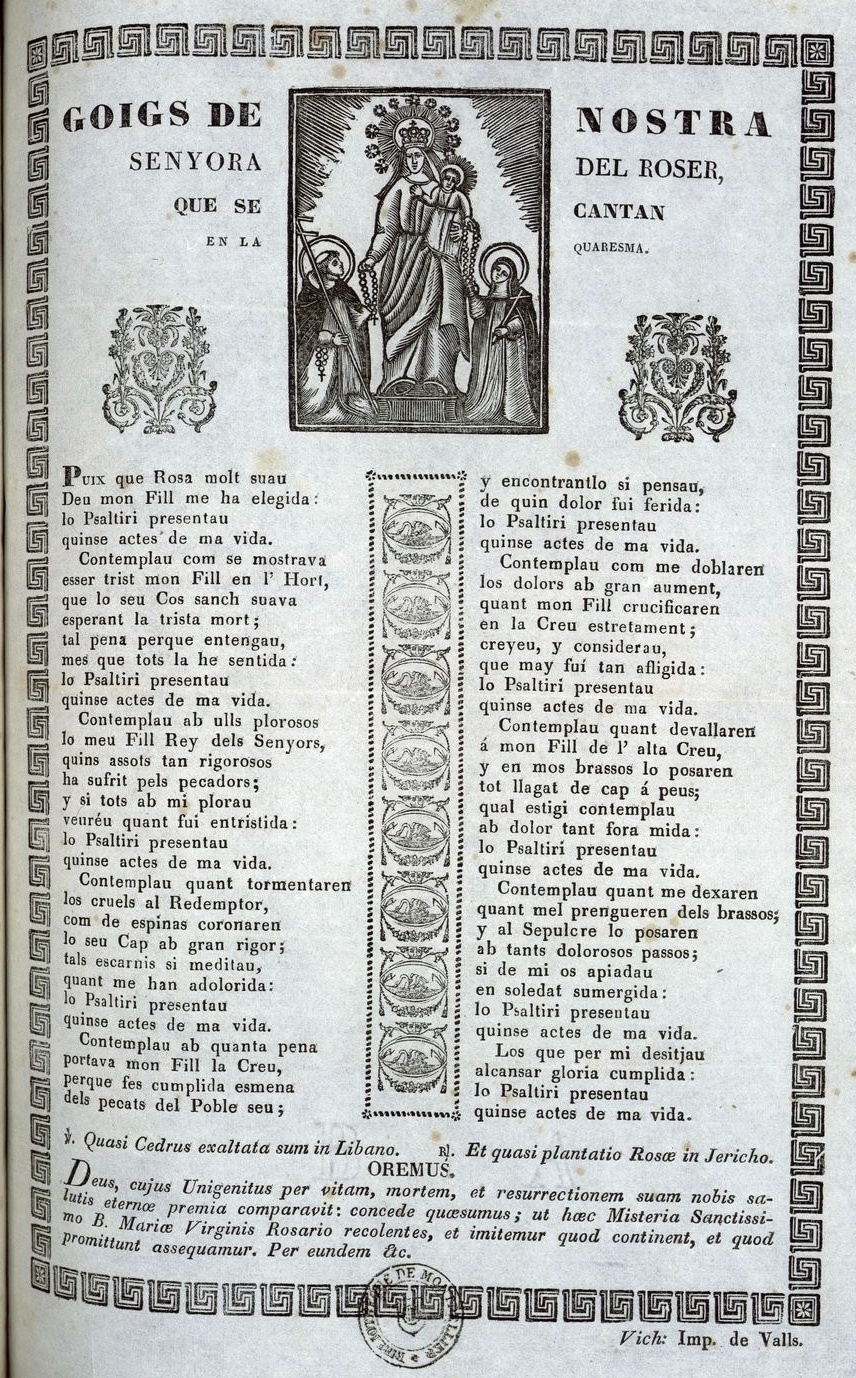 GOIGS DE NOSTRA
SENYORA DEL ROSER,
QUE SE CANTAN
EN LA QUARESMA.
PUIX que Rosa molt suau
Deu mon Fill me ha elegida:
lo Psaltiri presentau
quinse actes de ma vida.
Contemplau com se mostrava
esser trist mon Fill en l' Hort,
que lo seu Cos sanch suava
esperant la trista mort;
tal pena perque entengau,
mes que tots la he sentida:
lo Psaltiri presentau
quinse actes de ma vida.
Contemplau ab ulls plorosos
lo meu Fill Rey dels Senyors,
quins assots tan rigorosos
ha sufrit pels pecadors;
y si tots ab mi plorau
veuréu quant fui entristida:
lo Psaltiri presentau
quinse actes de ma vida.
Contemplau quant tormentaren
los cruels al Redemptor,
com de espinas coronaren
lo seu Cap ab gran rigor;
tals escarnis si meditau,
quant me han adolorida:
lo Psaltiri presentau
quinse actes de ma vida.
Contemplau ab quanta pena
portava mon Fill la Creu,
perque fes cumplida esmena
dels pecats del Poble seu;
y encontrantlo si pensau,
de quin dolor fui ferida:
lo Psaltiri presentau
quinse actes de ma vida.
Contemplau com me doblaren
los dolors ab gran aument,
quant mon Fill crucificaren
en la Creu estretament;
creyeu, y considerau,
que may fuí tan afligida:
lo Psaltiri presentau
quinse actes de ma vida.
Contemplau quant devallaren
á mon Fill de l' alta Creu,
y en mos brassos lo posaren
tot llagat de cap á peus;
qual estigi contemplau
ab dolor tant fora mida:
lo Psaltiri presentau
quinse actes de ma vida.
Contemplau quant me dexaren
quant mel prengueren dels brassos;
y al Sepulcre lo posaren
ab tants dolorosos passos;
si de mi os apiadau
en soledat sumergida:
lo Psaltiri presentau
quinse actes de ma vida.
Los que per mi desitjau
alcansar gloria cumplida:
lo Psaltiri presentau
quinse actes de ma vida.
℣. Quasi Cedrus exaltata sum in Libano. ℟. Et quasi plantatio Rosæ in Jericho.
OREMUS.
Deus, cujus Unigenitus per vitam, mortem, et resurrectionem suam nobis sa-
lutis eternœ premia comparavit: concede quæsumus; ut hæc Misteria Sanctissi-
mo B. Mariæ Virginis Rosario recolentes, et imitemur quod continent, et quod
promittunt assequamur. Per eundem &c.
Vich: Imp. de Valls.